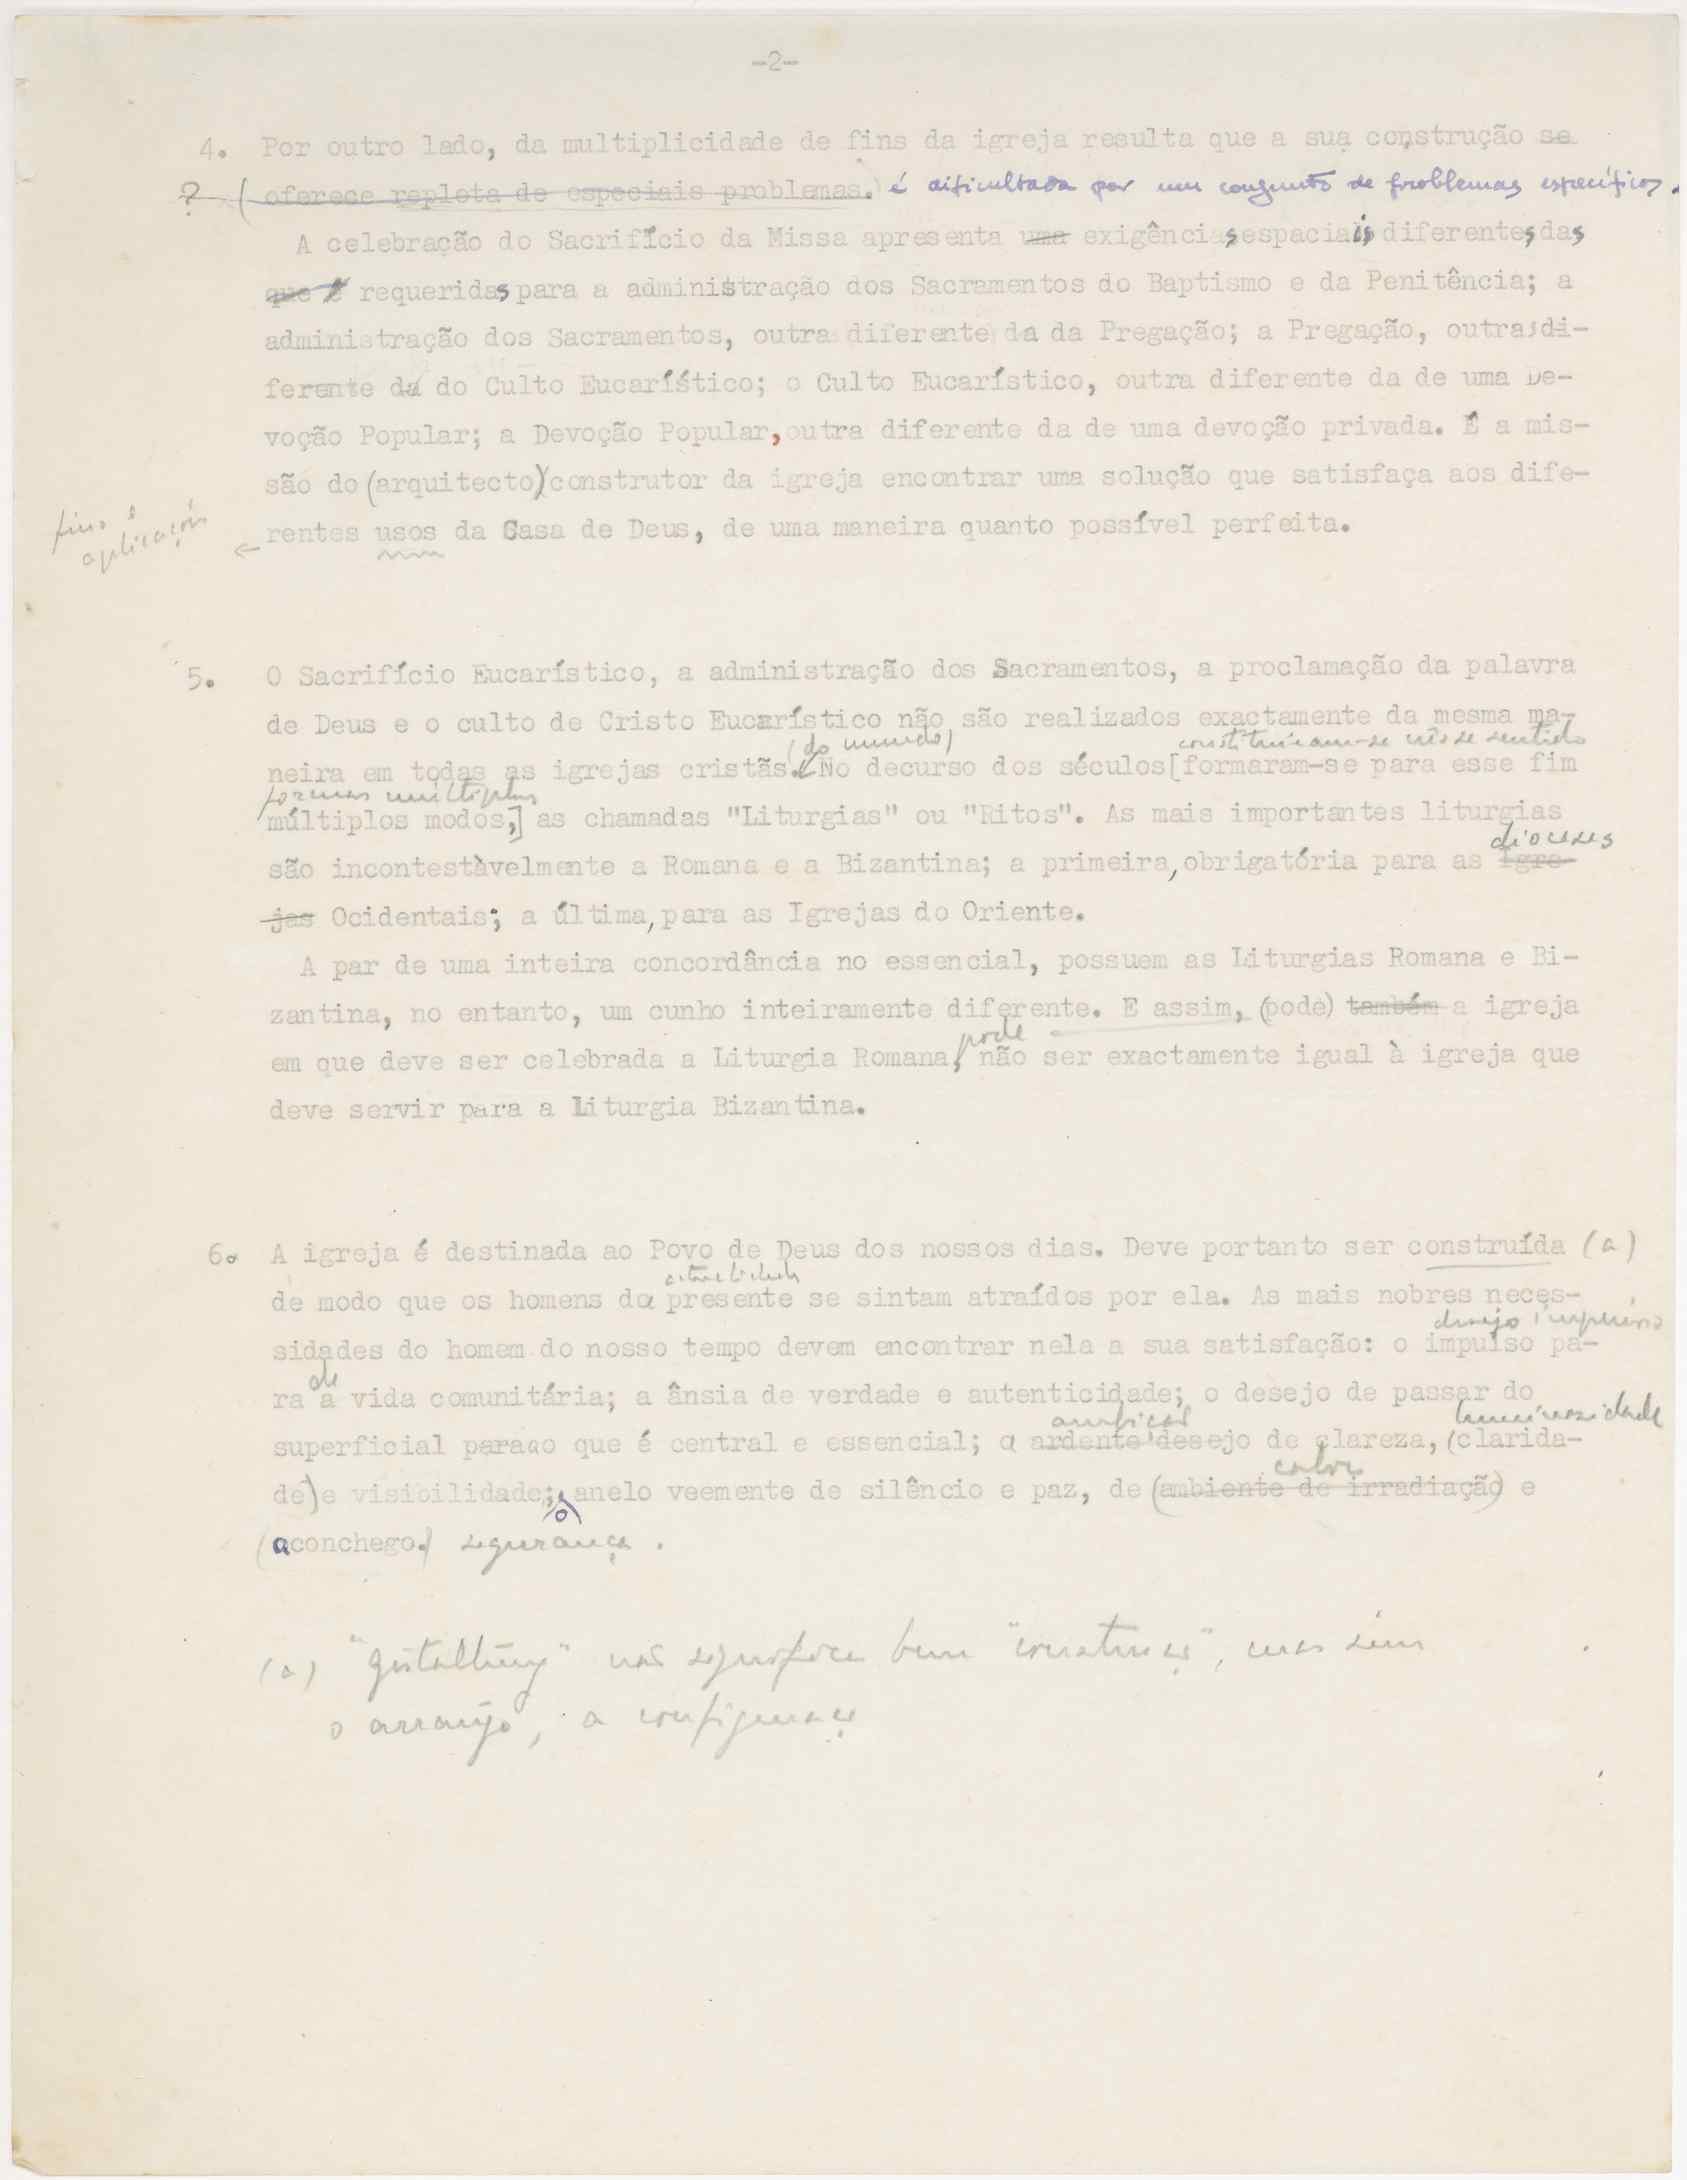 -2-
4. Por outro lado, da multiplicidade de fins da igreja resulta que a sua construção se
? (oferece repleta de especiais problemas.) é dificultada por um conjunto de problemas específicos.
A celebração do Sacrifício da Missa apresenta uma exigências espaciais diferentes das
que é requeridas para a administração dos Sacramentos do Baptismo e da Penitência; a
administração dos Sacramentos, outra diferente da da Pregação; a Pregação, outras di-
ferente da do Culto Eucarístico; o Culto Eucarístico, outra diferente da de uma De-
voção Popular; a Devoção Popular, outra diferente da de uma devoção privada. É a mis-
são do (arquitecto) construtor da igreja encontrar uma solução que satisfaça aos dife-
fins e
aplicações
← rentes usos da Casa de Deus, de uma maneira quanto possível perfeita.
5. O Sacrifício Eucarístico, a administração dos Sacramentos, a proclamação da palavra
de Deus e o culto de Cristo Eucarístico não são realizados exactamente da mesma ma-
(do mundo) constituiram-se nêsse sentido
neira em todas as igrejas cristãs. No decurso dos séculos [formaram-se para esse fim
formas múltiplas
múltiplos modos,] as chamadas "Liturgias" ou "Ritos". As mais importantes liturgias
dioceses
são incontestàvelmente a Romana e a Bizantina; a primeira, obrigatória para as Igre-
jas Ocidentais; a última, para as Igrejas do Oriente.
A par de uma inteira concordância no essencial, possuem as Liturgias Romana e Bi-
zantina, no entanto, um cunho inteiramente diferente. E assim, (pode) também a igreja
pode
em que deve ser celebrada a Liturgia Romana, não ser exactamente igual à igreja que
deve servir para a Liturgia Bizantina.
6. A igreja é destinada ao Povo de Deus dos nossos dias. Deve portanto ser construída (a)
actualidade
de modo que os homens da presente se sintam atraídos por ela. As mais nobres neces-
desejo imperioso
sidades do homem do nosso tempo devem encontrar nela a sua satisfação: o impulso pa-
de
ra a vida comunitária; a ânsia de verdade e autenticidade; o desejo de passar do
ambição luminosidade
superficial para o que é central e essencial; a ardente desejo de clareza, (clarida-
calor
de) e visibilidade; o anelo veemente de silêncio e paz, de (ambiente de irradiação) e
(aconchego.) segurança.
(a) "gestaltung" não significa bem "construção", mas sim
o arranjo, a configuração